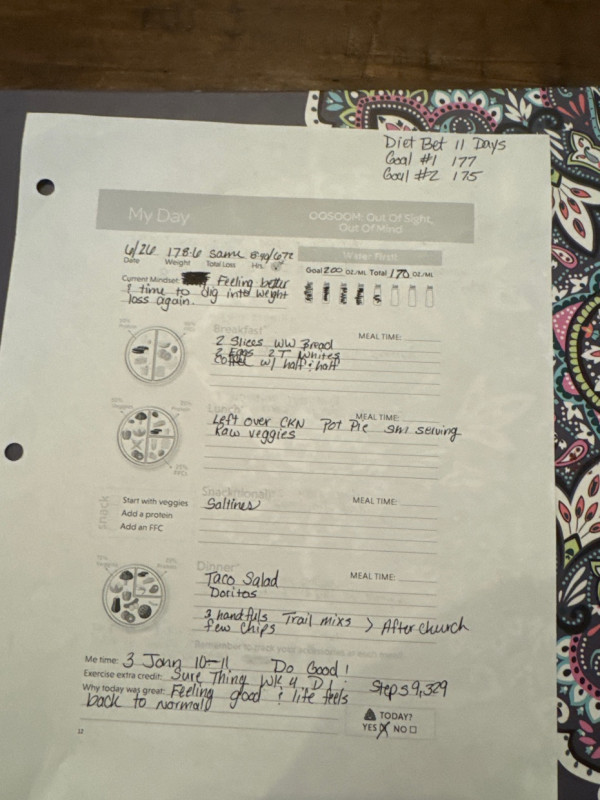 Diet Bet 11 Days
Goal #1 177
Goal #2 175
My Day
OOSOOM: Out Of Sight,
Out Of Mind
6/26 178.6 same
Date Weight Total Loss Hrs.
Water First!
Goal 200 OZ/ML Total 170 OZ/ML
Current Mindset: Feeling better
& time to dig into weight
loss again.
Breakfast
MEAL TIME:
2 Slices WW Bread
2 Eggs 2 T Whites
Coffee w/ half & half
Lunch
MEAL TIME:
Left over CKN Pot Pie sm serving
Raw veggies
snack
Start with veggies
Add a protein
Add an FFC
Snack(tional)
MEAL TIME:
Saltines
Dinner
MEAL TIME:
Taco Salad
Doritos
3 handfuls Trail mixs > After church
few chips
Remember to track your accessories at each meal!
Me time: 3 John 10-11 Do Good!
Exercise extra credit: Sure Thing WK 4 D1 Steps 9,329
Why today was great: Feeling good & life feels
back to normal
TODAY?
YES X NO
12